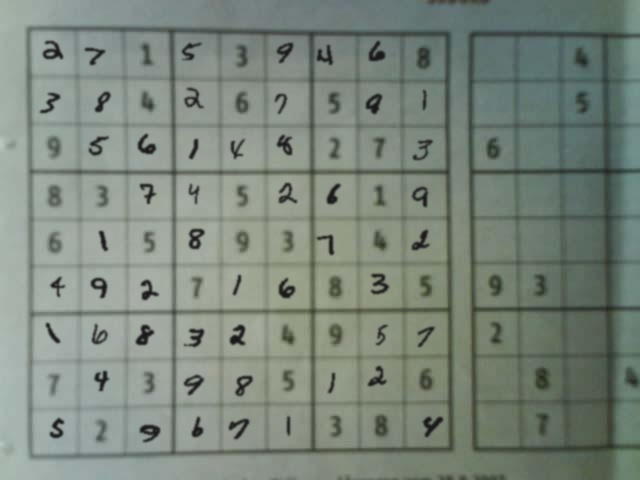 2 7 1 5 3 9 4 6 8 4
3 8 4 2 6 7 5 9 1 5
9 5 6 1 4 8 2 7 3 6
8 3 7 4 5 2 6 1 9
6 1 5 8 9 3 7 4 2
4 9 2 7 1 6 8 3 5 9 3
1 6 8 3 2 4 9 5 7 2
7 4 3 9 8 5 1 2 6 8 4
5 2 9 6 7 1 3 8 4 7